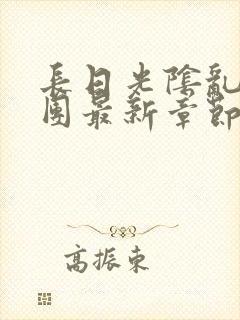 長日光陰亂
團最新章節
高振東